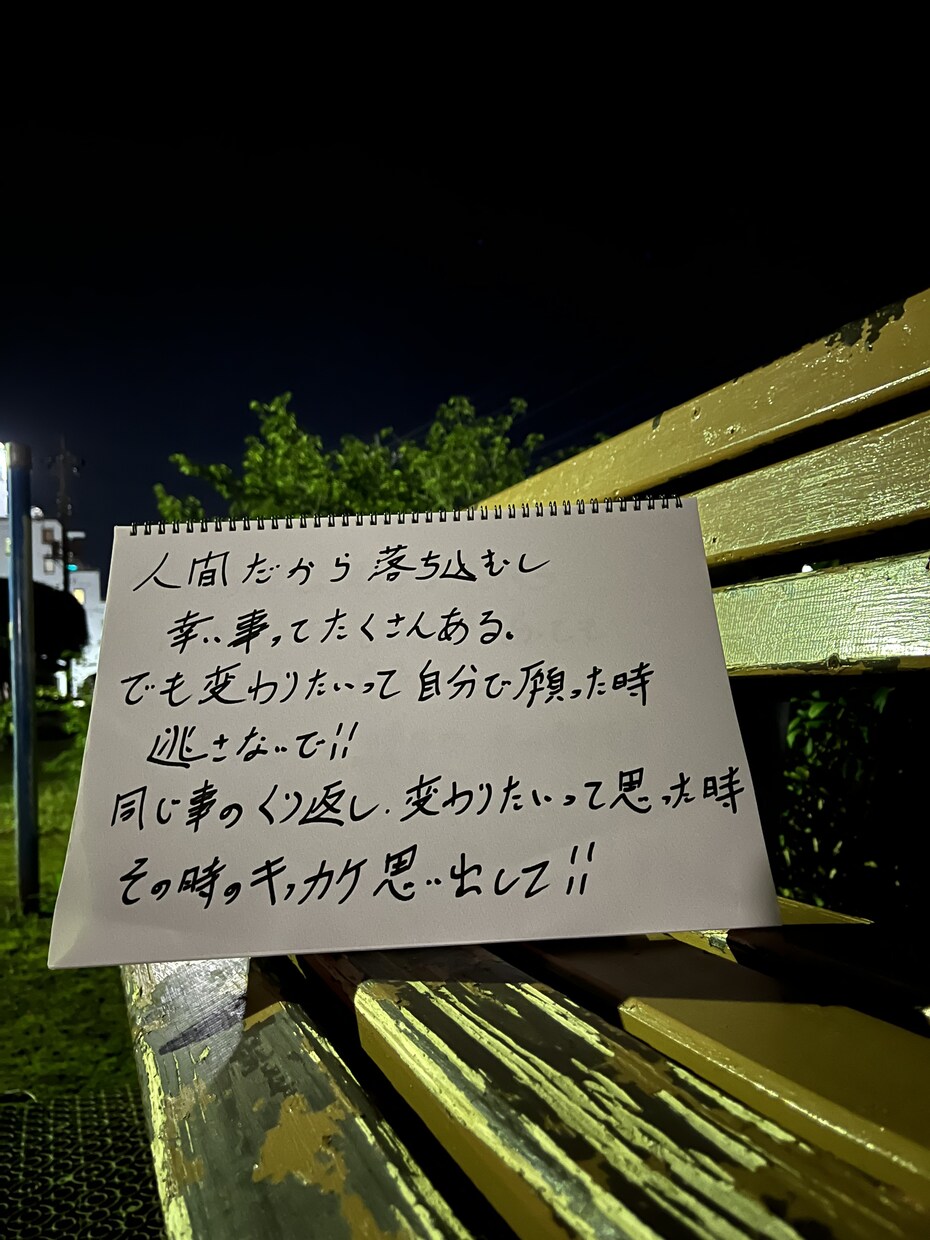 人間だから落ち込むし
幸い事ってたくさんある。
でも変わりたいって自分で願った時
逃さないで!!
同じ事のくり返し.変わりたいって思った時
その時のキッカケ思い出して!!